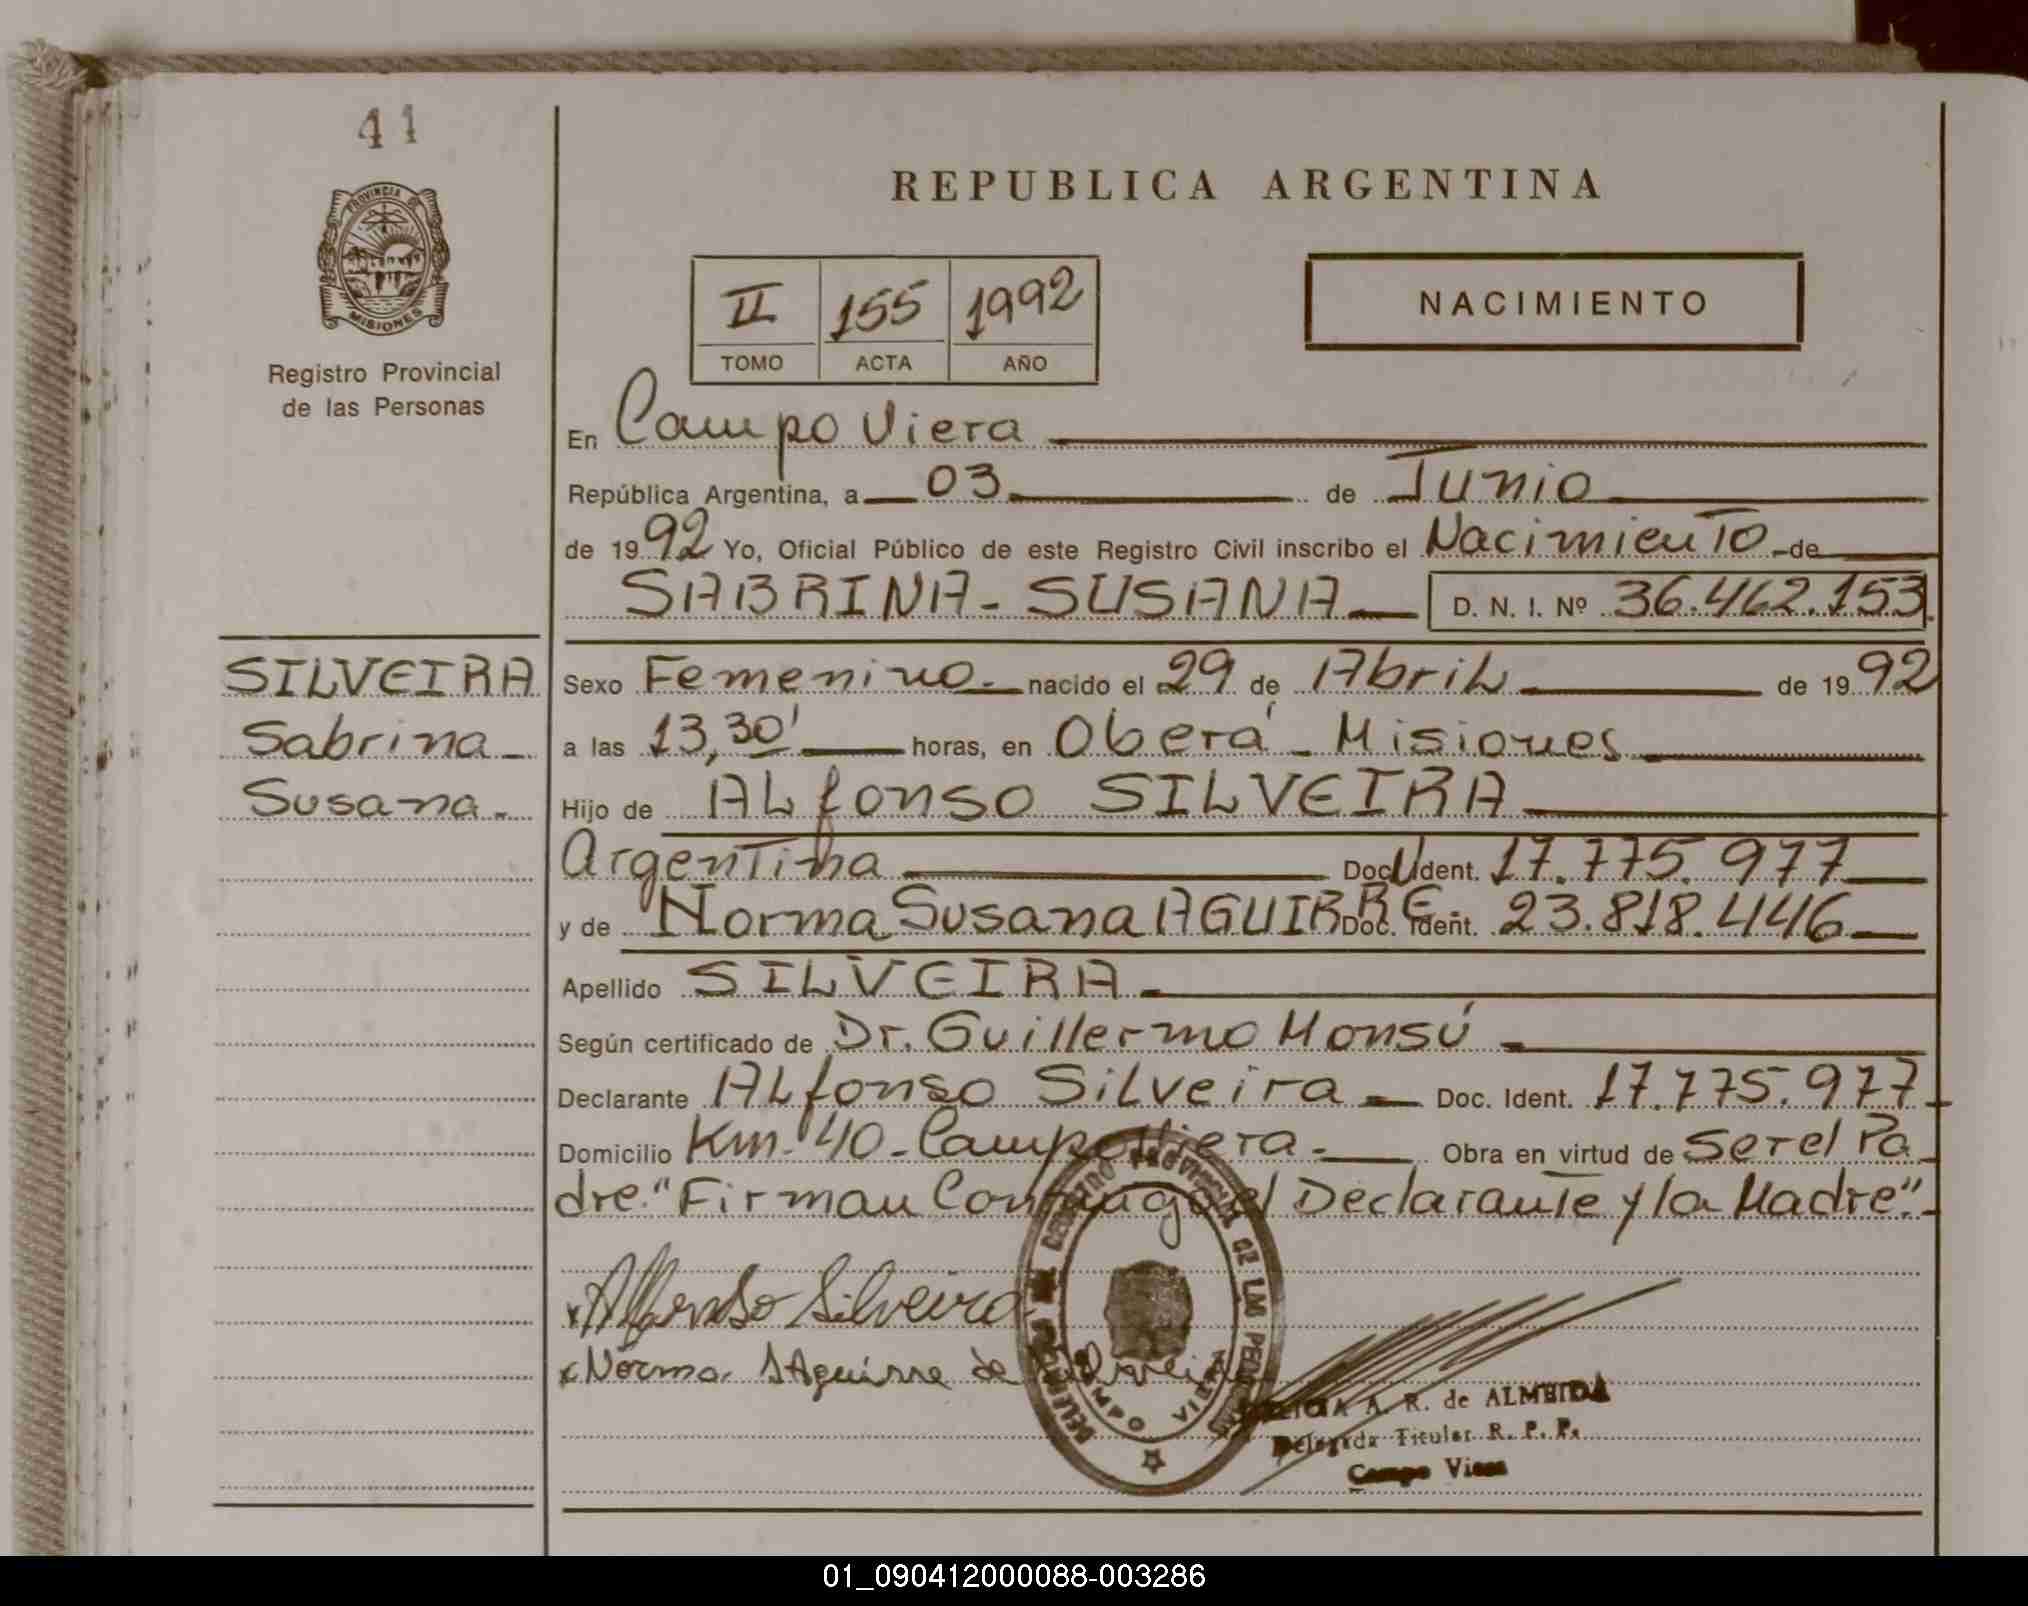 41
PROVINCIA DE
MISIONES
Registro Provincial
de las Personas
REPUBLICA ARGENTINA
II 155 1992
TOMO ACTA AÑO
NACIMIENTO
En Campo Viera
República Argentina, a 03 de Junio
de 1992 Yo, Oficial Público de este Registro Civil inscribo el Nacimiento de
SABRINA - SUSANA D. N. I. Nº 36.462.153
SILVEIRA
Sabrina
Susana.
Sexo Femenino. nacido el 29 de Abril de 1992
a las 13,30' horas, en Oberá - Misiones
Hijo de Alfonso SILVEIRA
Argentina Doc. Ident. 17.775.977
y de Norma Susana AGUIRRE. Doc. Ident. 23.818.446
Apellido SILVEIRA
Según certificado de Dr. Guillermo Monsú
Declarante Alfonso Silveira Doc. Ident. 17.775.977
Domicilio Km. 40 - Campo Viera. Obra en virtud de Ser el Pa
dre. "Firman Conjugo el Declarante y la Madre".
x Alfonso Silveira
x Norma S Aguirre de Silveira
REGISTRO PROVINCIAL DE LAS PERSONAS
CAMPO VIERA
A. R. de ALMEIDA
Delegada Titular R. P. P.
Campo Viera
01_090412000088-003286